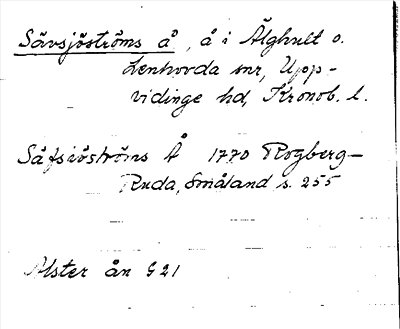 Sävsjöströms å, å i Älghult o.
Lenhovda snr, Upp-
vidinge hd, Kronob. l.
Säfsiöströms Å 1770 Rogberg-
Ruda, Småland s. 255
Alster ån G 21